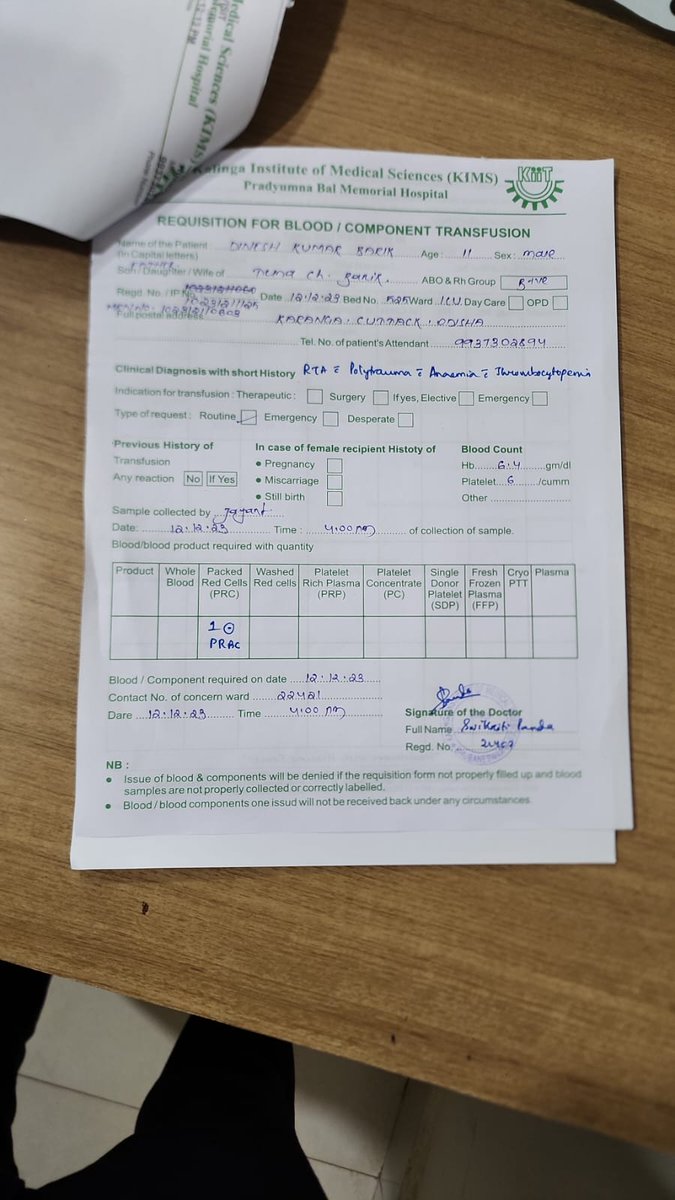 Medical Sciences (KIMS)
Memorial Hospital
Kalinga Institute of Medical Sciences (KIMS)
Pradyumna Bal Memorial Hospital
KiiT
REQUISITION FOR BLOOD / COMPONENT TRANSFUSION
Name of the Patient : DINESH KUMAR BARIK Age : 11 Sex : male
(In Capital letters)
Son / Daughter / Wife of Ch. Barik. ABO & Rh Group B+ve
Regd. No. / IP No. Date 12.12.23 Bed No. 525 Ward I.C.U. Day Care OPD
Full postal address KARANGA. CUTTACK. ODISHA
Tel. No. of patient's Attendant 9937302894
Clinical Diagnosis with short History RTA c̄ Polytrauma c̄ Anaemia c̄ Thrombocytopenia
Indication for transfusion : Therapeutic : Surgery If yes, Elective Emergency
Type of request : Routine Emergency Desperate
Previous History of In case of female recipient Histoty of Blood Count
Transfusion • Pregnancy Hb 6.4 gm/dl
Any reaction No If Yes • Miscarriage Platelet 6 /cumm
• Still birth Other
Sample collected by Jayant
Date: 12.12.23 Time : 4:00 PM of collection of sample.
Blood/blood product required with quantity
Product Whole Blood Packed Red Cells (PRC) Washed Red cells Platelet Rich Plasma (PRP) Platelet Concentrate (PC) Single Donor Platelet (SDP) Fresh Frozen Plasma (FFP) Cryo PTT Plasma
1
PRAC
Blood / Component required on date 12.12.23
Contact No. of concern ward 22421
Dare 12.12.23 Time 4:00 PM
Signature of the Doctor
Full Name Panda
Regd. No.
NB :
• Issue of blood & components will be denied if the requisition form not properly filled up and blood
samples are not properly collected or correctly labelled.
• Blood / blood components one issud will not be received back under any circumstances